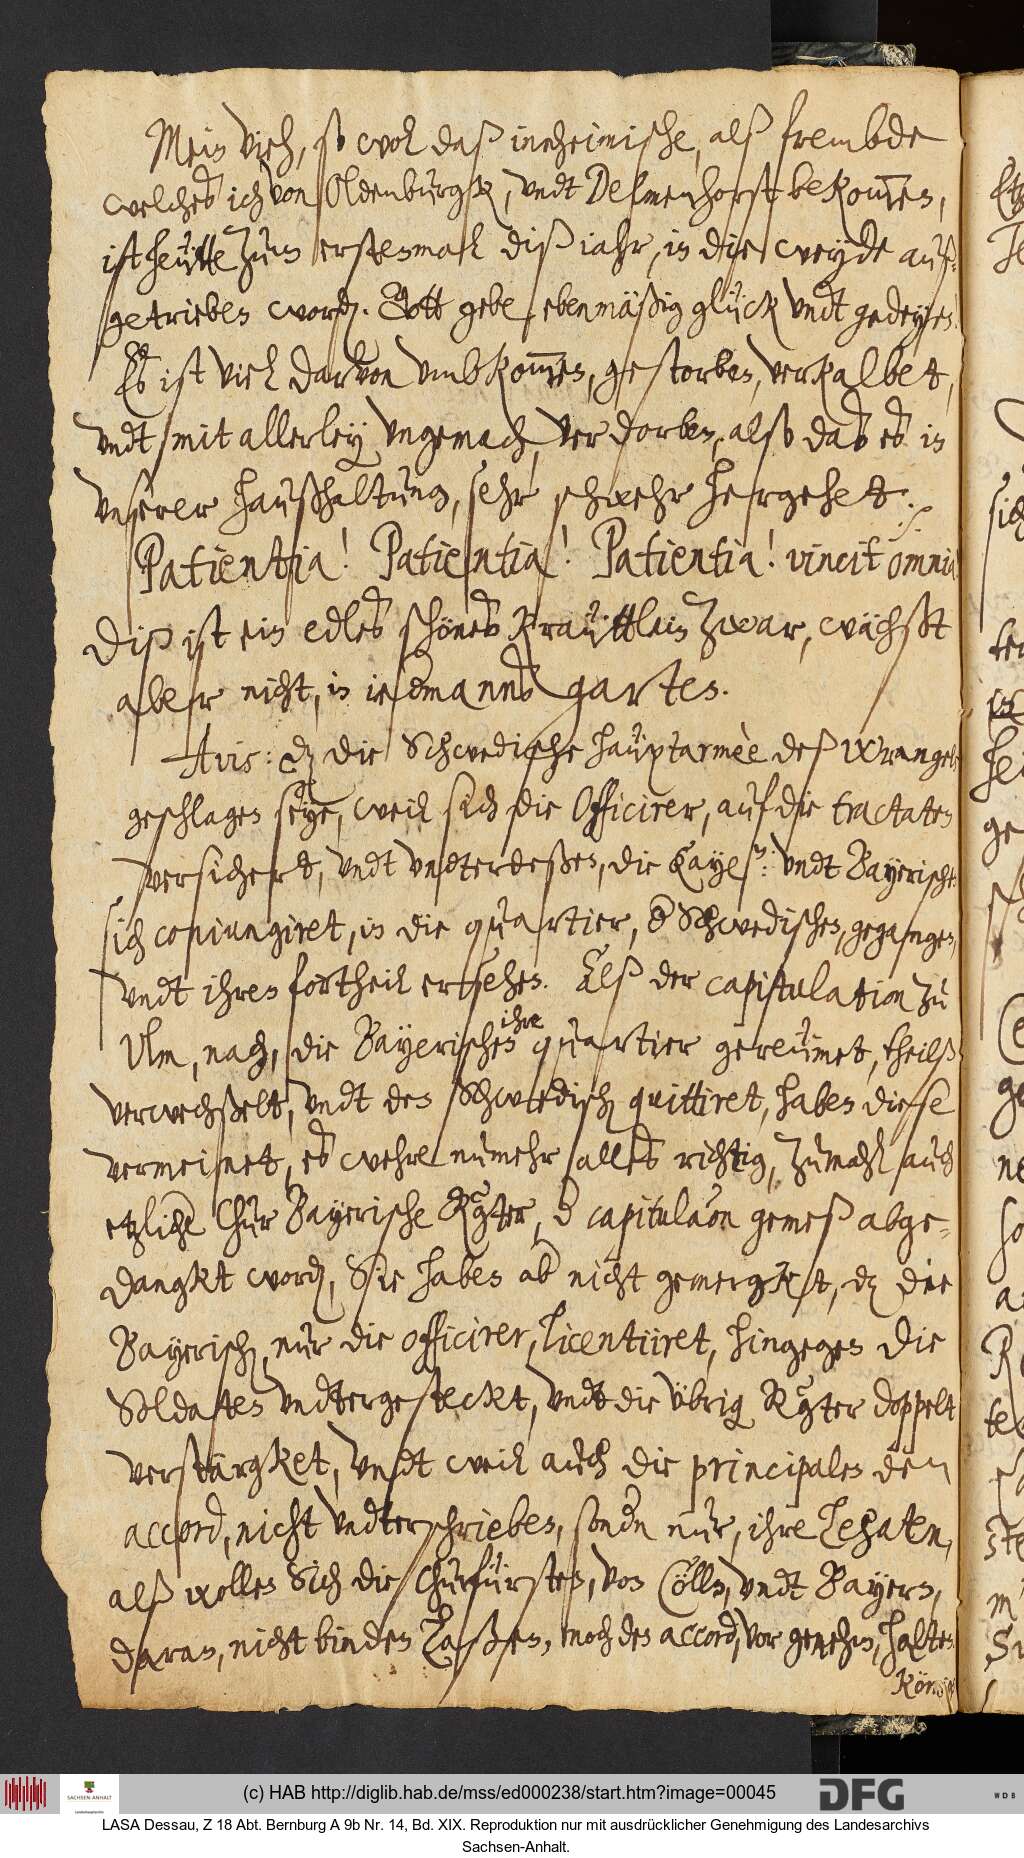 Mein Vieh, so wol daß inheimische, alß frembde
welches ich von Oldenburgk, vndt Delmenhorst bekom̅en,
ist heütte zum erstenmahl diß iahr, in die weyde auf-
getrieben word. Gott gebe ebenmäßig glück vndt gedeyen.
Es ist viel darvon vmbkom̅en, gestorben, verkalbet,
vndt mit allerley vngemach, verdorben, also das es in
vnserer haußhaltung, sehr schwehr hergehet ./.
Patientia! Patientia! Patientia! vincit omnia!
Diß ist ein edles schönes Kraüttlein zwar, wächßt
aber nicht, in iedmanns garten.
Avis: dz die Schwedische haüptarmèe deß Wrangels
geschlagen seye, weil sich die Officirer, auf die tractaten
versichert, vndt vndterdeßen, die Kayß: vndt Bayerische
sich coniungiret, in die quartier, d Schwedischen, gegangen,
vndt ihren fortheil ersehen. Alß der capitulation zu
Vlm, nach, die Bayerischen ihre quartier gereümet, theilß
verwechßelt, vndt den Schwedisch quittiret, haben diese
vermeinet, es wehre numehr alles richtig, zumahl auch
etzliche ChurBayerische Rgter, d capitulaõn gemeß abge-
dangkt word, Sie haben ab nicht gemergket, dz die
Bayerisch, nur die officirer, licentiiret, hingegen die
Soldaten vndtergesteckt, vndt die übrig Rgter doppelt
verstärgket, vndt weil auch die principalen den
accord, nicht vndterschrieben, sondn nur, ihre Legaten,
alß wollen Sich die Churfürsten, von Cölln, vndt Bayern,
daran, nicht binden laßen, noch den accord, vor genehm, halten.
(c) HAB http://diglib.hab.de/mss/ed000238/start.htm?image=00045
SACHSEN-ANHALT
DFG
WDB
LASA Dessau, Z 18 Abt. Bernburg A 9b Nr. 14, Bd. XIX. Reproduktion nur mit ausdrücklicher Genehmigung des Landesarchivs
Sachsen-Anhalt.